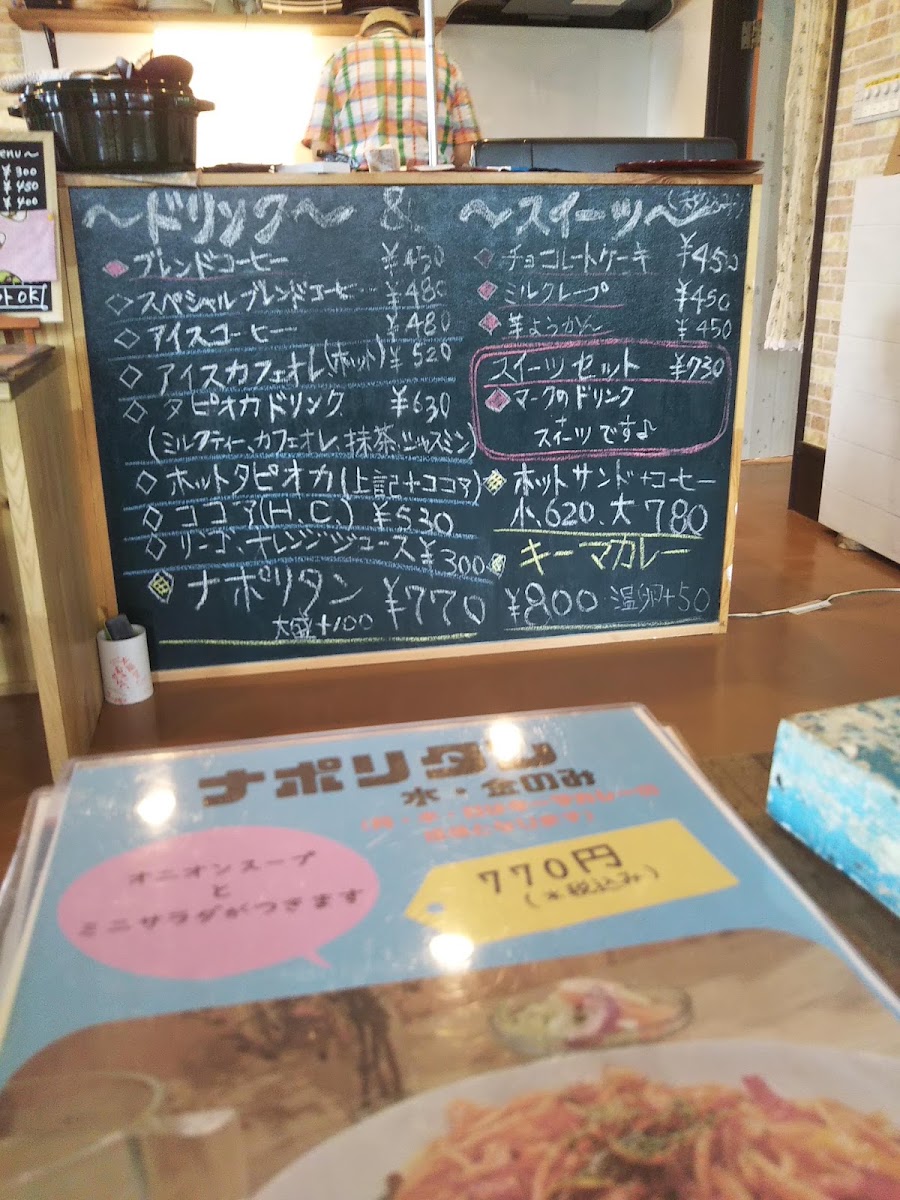 enu～
¥300
¥450
¥400
OK
～ドリンク～ &
ブレンドコーヒー ¥430
スペシャルブレンドコーヒー ¥480
アイスコーヒー ¥480
アイスカフェオレ(ホット) ¥520
タピオカドリンク ¥630
(ミルクティー、カフェオレ、抹茶、ジャスミン)
ホットタピオカ(上記+ココア)
ココア(H.C.) ¥530
リンゴ、オレンジジュース ¥300
ナポリタン ¥770
大盛+100
～スイーツ～
チョコレートケーキ ¥450
ミルクレープ ¥450
芋ようかん ¥450
スイーツセット ¥730
マークのドリンク
+
スイーツです♪
ホットサンド+コーヒー
小、620、大780
キーマカレー
¥800 温卵+50
ナポリタン
水・金のみ
オニオンスープ
と
ミニサラダがつきます
770円
(*税込み)